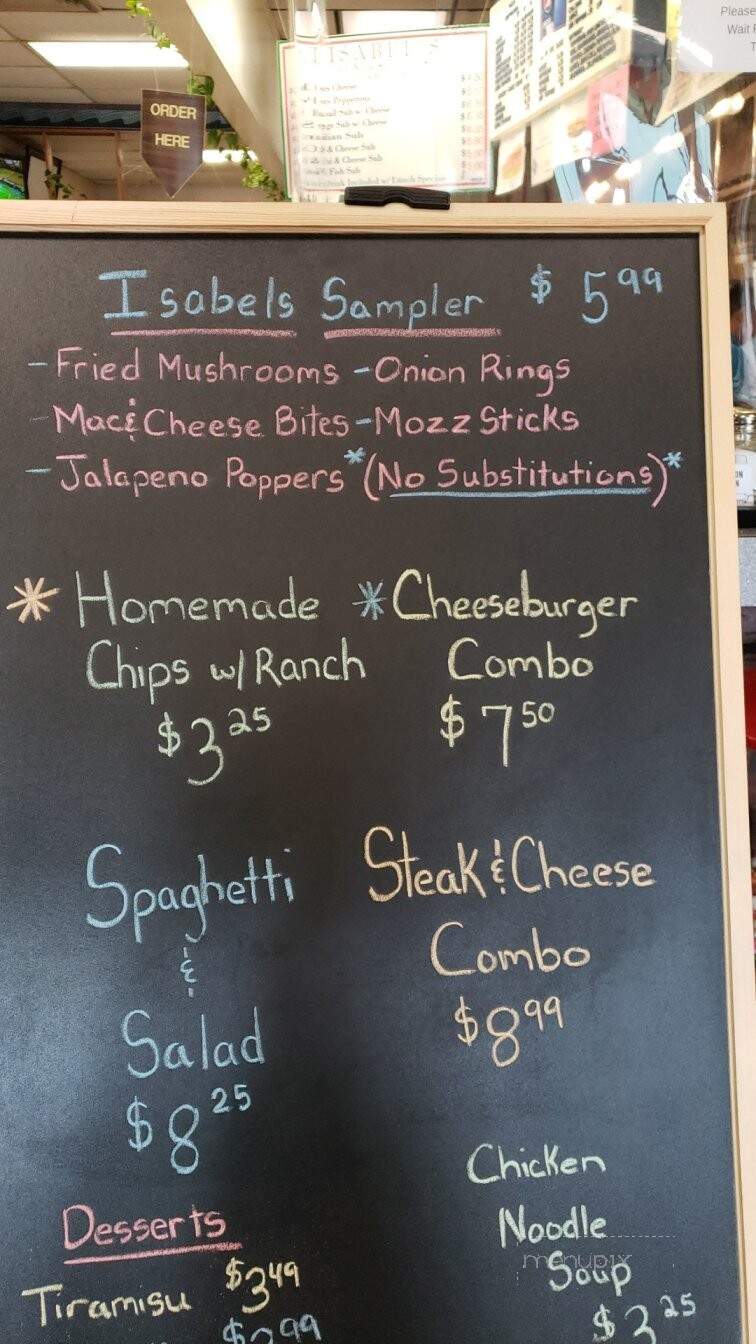 Please
Wait
ORDER
HERE
Isabels Sampler $5.99
- Fried Mushrooms - Onion Rings
- Mac & Cheese Bites - Mozz Sticks
- Jalapeno Poppers *(No Substitutions)*
* Homemade
Chips w/ Ranch
$3.25
* Cheeseburger
Combo
$7.50
Spaghetti
&
Salad
$8.25
Steak & Cheese
Combo
$8.99
Chicken
Noodle
Soup
$3.25
Desserts
Tiramisu $3.49
menupix